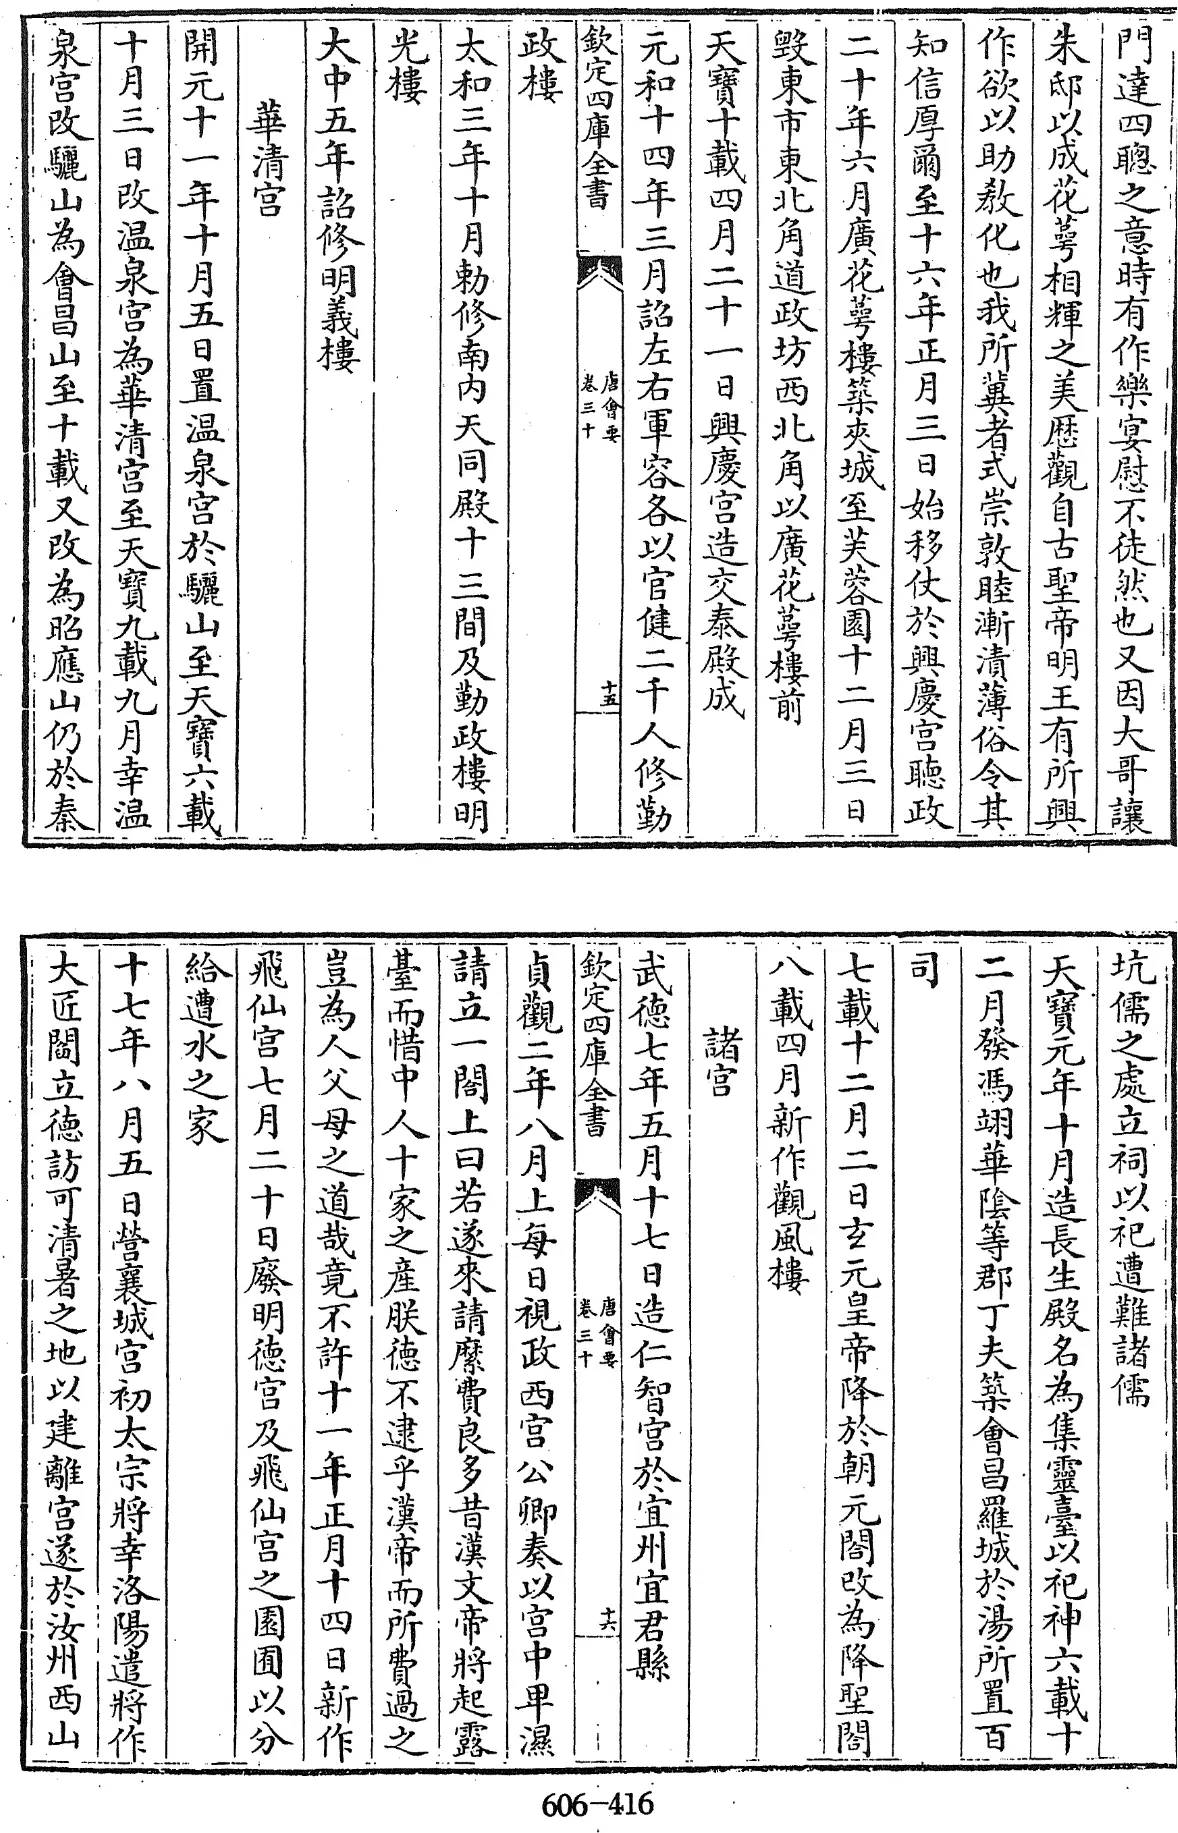 門達四聰之意時有作樂宴慰不徒然也又因大哥讓
朱邸以成花萼相輝之美歴觀自古聖帝明王有所興
作欲以助教化也我所冀者式崇敦睦漸漬薄俗令其
知信厚爾至十六年正月三日始移仗於興慶宮聽政
二十年六月廣花萼樓築夾城至芙蓉園十二月三日
毀東市東北角道政坊西北角以廣花萼樓前
天寶十載四月二十一日興慶宮造交泰殿成
元和十四年三月詔左右軍容各以官健二千人修勤
欽定四庫全書
唐會要
卷三十
十五
政樓
太和三年十月勅修南内天同殿十三間及勤政樓明
光樓
大中五年詔修明義樓
華清宮
開元十一年十月五日置温泉宮於驪山至天寶六載
十月三日改温泉宮為華清宮至天寶九載九月幸温
泉宮改驪山為會昌山至十載又改為昭應山仍於秦
坑儒之處立祠以祀遭難諸儒
天寶元年十月造長生殿名為集靈臺以祀神六載十
二月發馮翊華陰等郡丁夫築會昌羅城於湯所置百
司
七載十二月二日玄元皇帝降於朝元閣改為降聖閣
八載四月新作觀風樓
諸宮
武德七年五月十七日造仁智宮於宜州宜君縣
欽定四庫全書
唐會要
卷三十
十六
貞觀二年八月上每日視政西宮公卿奏以宮中卑濕
請立一閣上曰若遂來請縻費良多昔漢文帝將起露
臺而惜中人十家之産朕德不逮乎漢帝而所費過之
豈為人父母之道哉竟不許十一年正月十四日新作
飛仙宮七月二十日廢明德宮及飛仙宮之園囿以分
給遭水之家
十七年八月五日營襄城宮初太宗將幸洛陽遣將作
大匠閻立德訪可清暑之地以建離宮遂於汝州西山
606-416